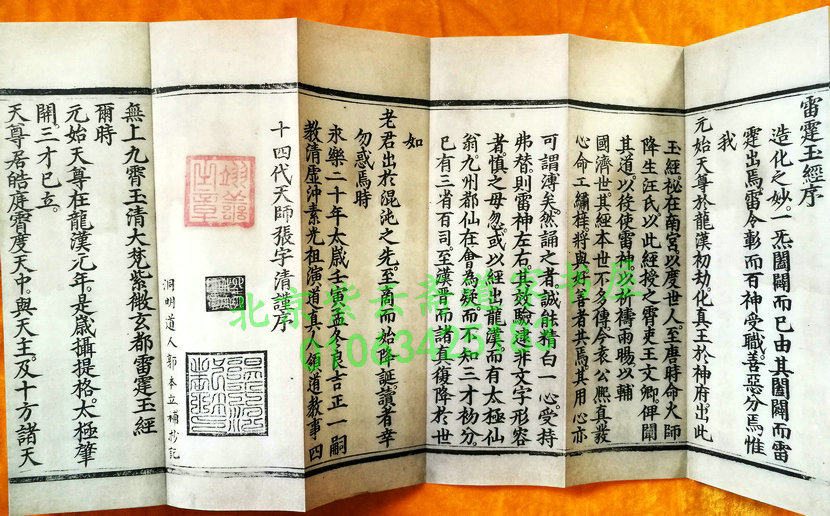 雷霆玉經序
造化之妙。一炁闔闢而已由其闔闢而雷
霆出焉雷令彰而百神受職。善惡分焉惟
我
元始天尊於龍漢初劫。化真王於神府。出此
玉經。祕在南宮以度世人。至唐時命火師
降生汪氏以此經授之霄吏王文卿俾闡
其道。以役使雷神。以祈禱雨暘以輔
國濟世。其經本世不多傳今袁公熙真發
心命工繡梓將與好善者共焉其用心亦
可謂溥矣。然誦之者。誠能精白一心。受持
弗替。則雷神左右。其效驗速非文字形容
者慎之毋忽。或以經出龍漢。而有太極仙
翁。九州都仙在會為疑。而不知三才初分。
已有三省百司。至漢晉而諸真復降於世
如
老君出於混沌之先。至商而始降誕。讀者幸
勿惑焉時
永樂二十年太歲壬寅孟冬良吉正一嗣
教清虛沖素光祖演道真人領道教事四
十四代天師張宇清謹序
洞明道人郭本立補抄記
無上九霄玉清大梵紫微玄都雷霆玉經
爾時
元始天尊在龍漢元年。是歲攝提格。太極肇
開三才已立。
天尊居皓庭霄度天中。與天主。及十方諸天
北京紫云斋道家书屋